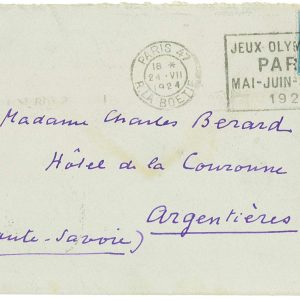 PARIS 47
18 *
24 - VII
1924
R. LA BOETIE
JEUX OLYM
PARI
MAI-JUIN-
192
Madame Charles Bérard
Hôtel de la Couronne
Argentières
aute-Savoie)